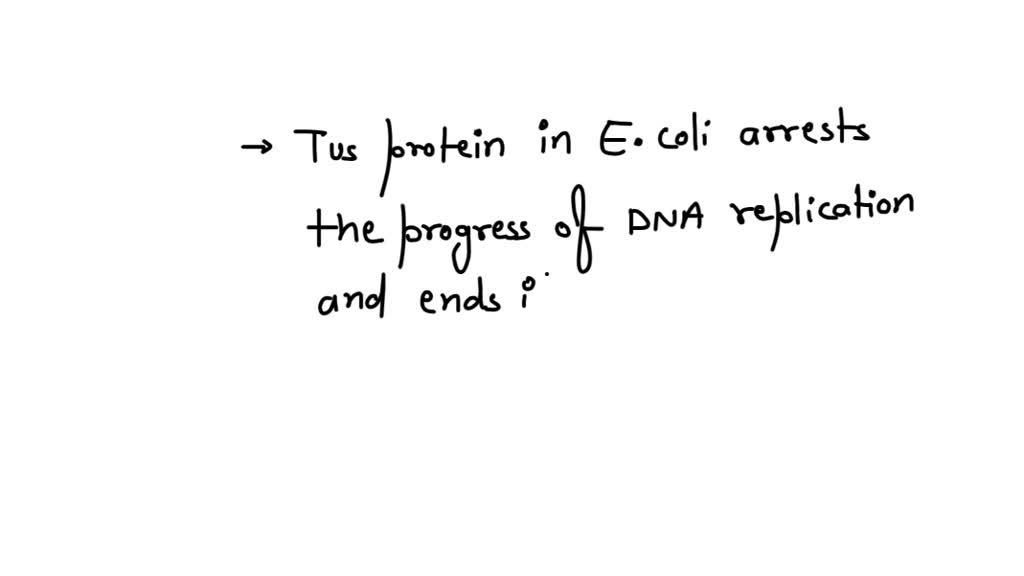 → Tus protein in E. coli arrests
the progress of DNA replication
and ends i